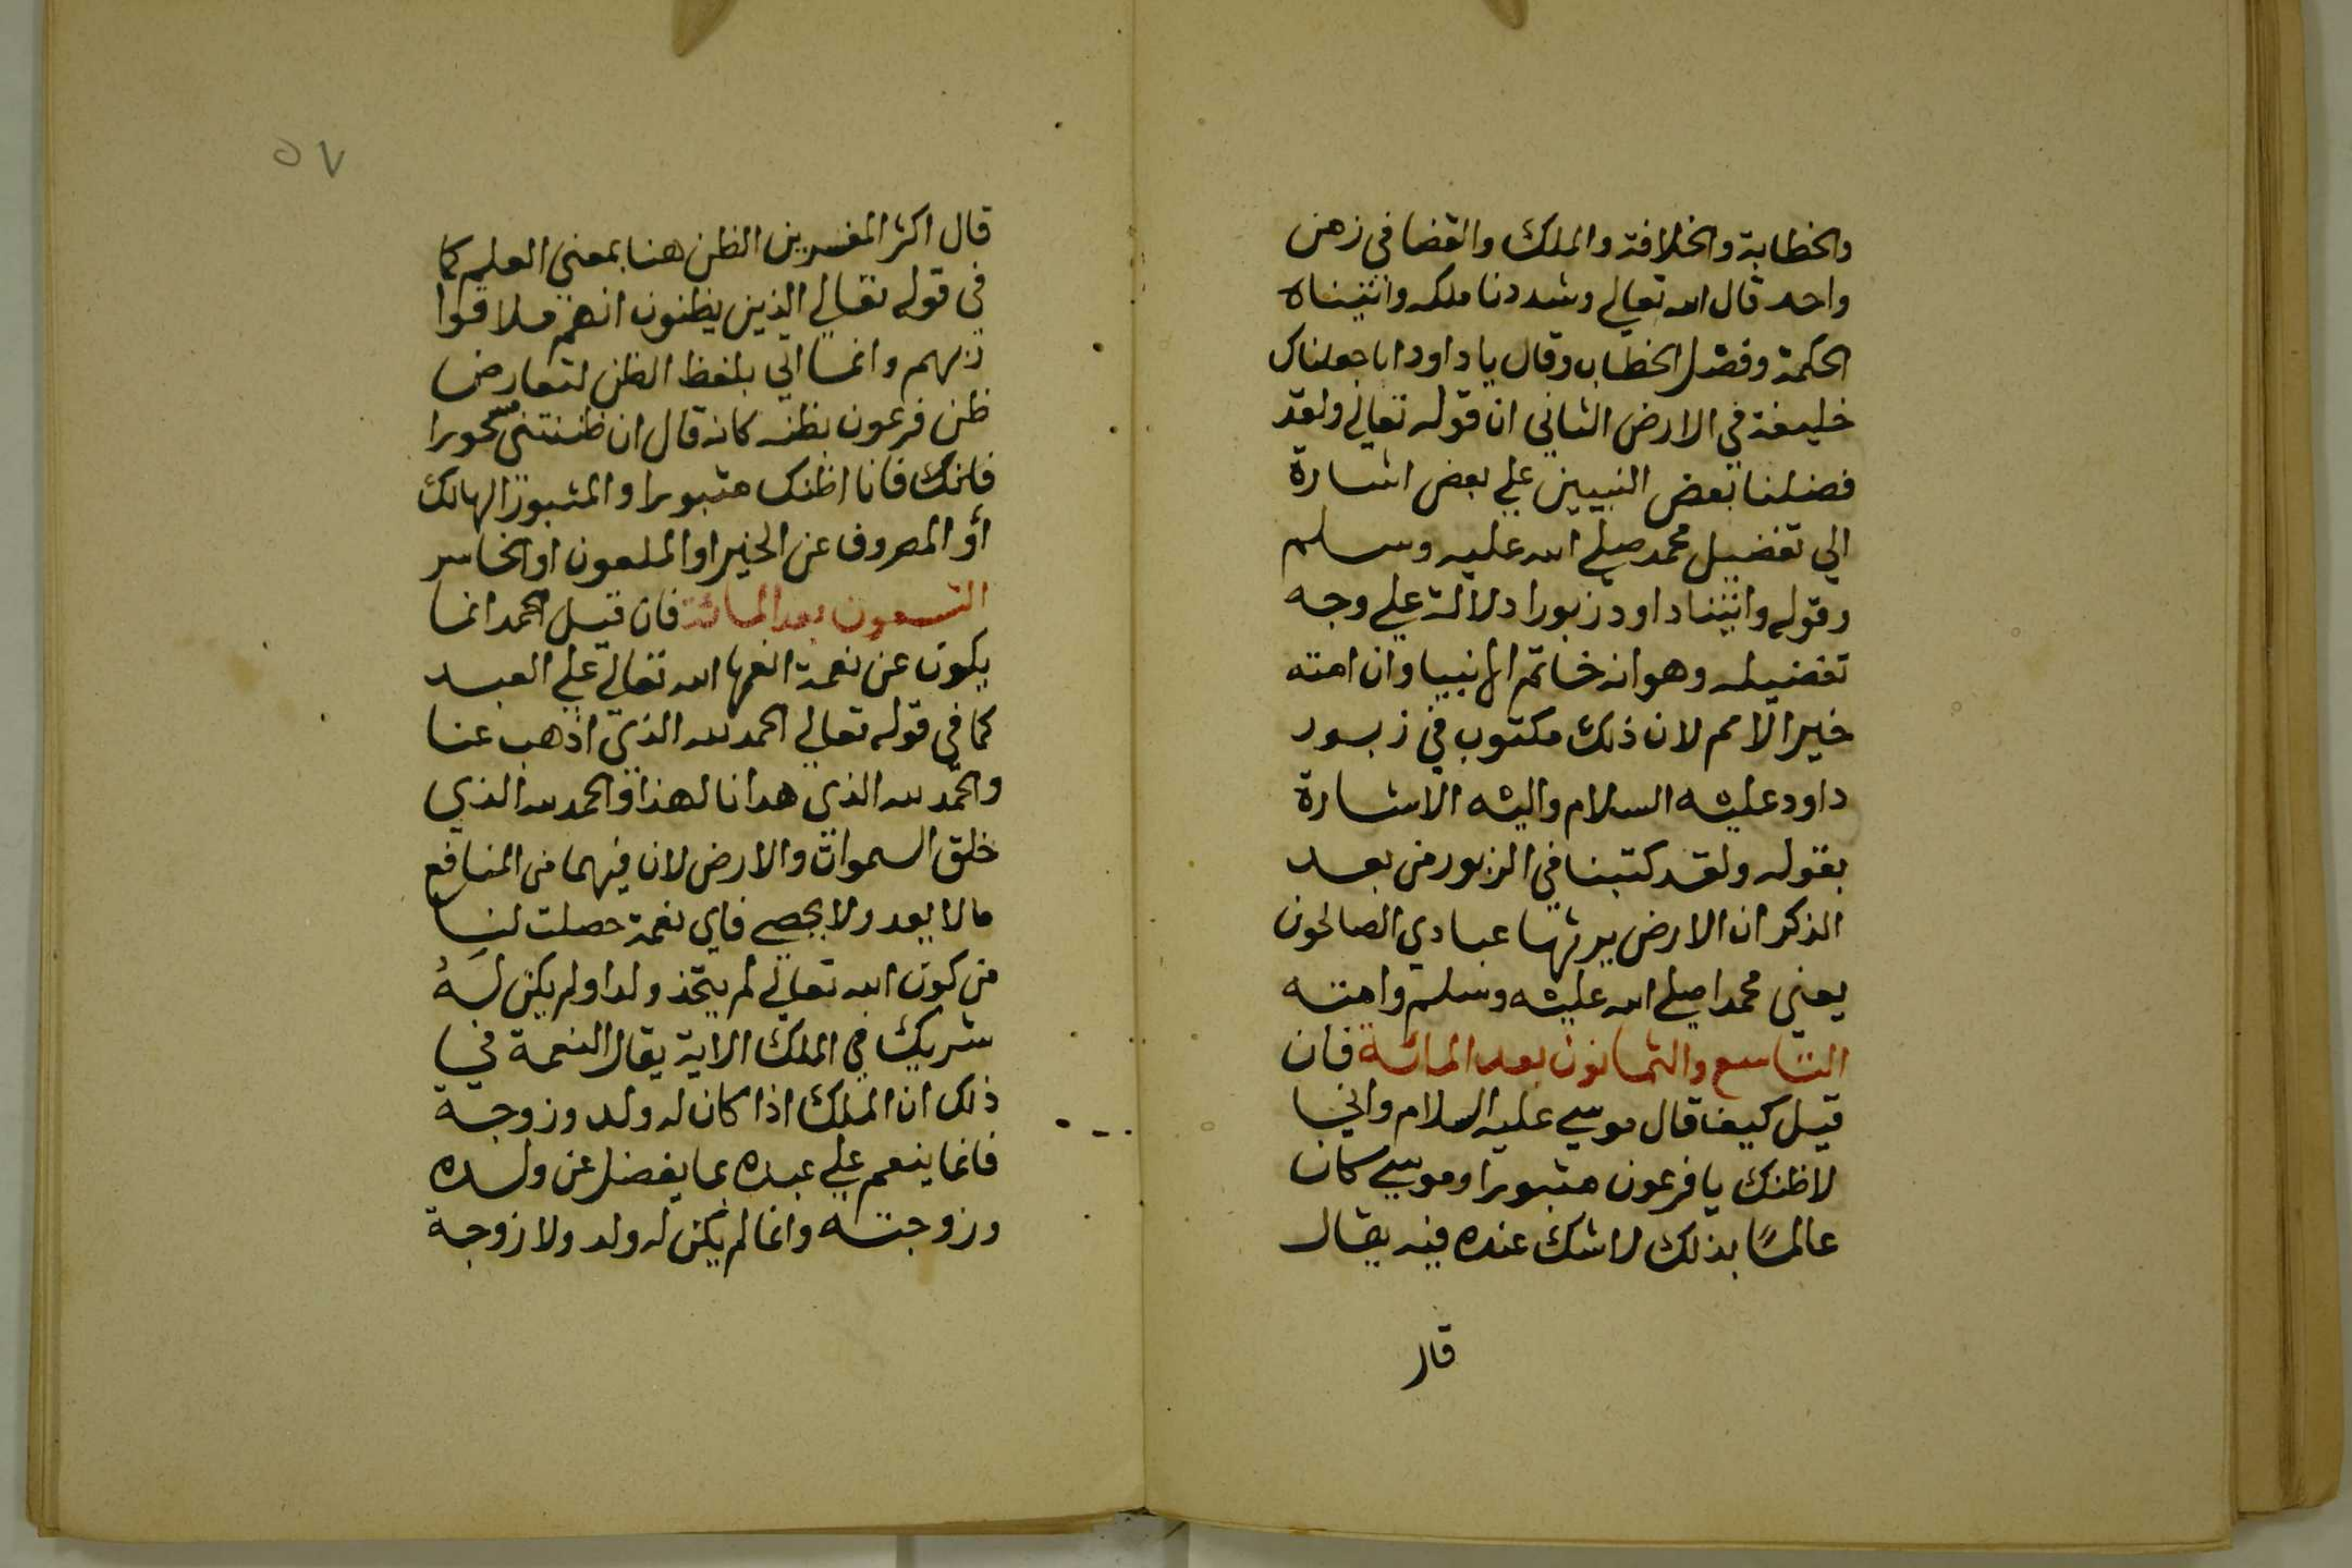 والخطابة والخلافة والملك والقضا في زمن
واحد قال الله تعالي وشددنا ملكه واتيناه
الحكمة وفصل الخطاب وقال يا داود انا جعلناك
خليفة في الارض الثاني ان قوله تعالي ولقد
فضلنا بعض النبيين علي بعض اشارة
الي تفضيل محمد صلي الله عليه وسلم
وقوله واتينا داود زبورا دلالة علي وجه
تفضيله وهو انه خاتم الانبيا وان امته
خير الامم لان ذلك مكتوب في زبور
داود عليه السلام واليه الاشارة
بقوله ولقد كتبنا في الزبور من بعد
الذكر ان الارض يرثها عبادي الصالحون
يعني محمدا صلي الله عليه وسلم وامته
التاسع والثمانون بعد المائة فان
قيل كيف قال موسي عليه السلام واني
لاظنك يا فرعون مثبورا وموسي كان
عالمًا بذلك لا شك عنده فيه يقال
قال
٥٧
قال اكثر المفسرين الظن هنا بمعني العلم كما
في قوله تعالي الذين يظنون انهم ملاقوا
ربهم وانما اتي بلفظ الظن لتعارض
ظن فرعون بظنه كانه قال ان ظننتني مسحورا
فانك فانا اظنك مثبورا والمثبور الهالك
أو المصروف عن الخير او الملعون او الخاسر
التسعون بعد المائة فان قيل الحمد انما
يكون عن نعمة انعمها الله تعالي علي العبد
كما في قوله تعالي الحمد لله الذي اذهب عنا
والحمد لله الذي هدانا لهذا والحمد لله الذي
خلق السموات والارض لان فيهما من المنافع
ما لا يعد ولا يحصي فاي نعمة حصلت لنا
من كون الله تعالي لم يتخذ ولدا ولم يكن له
شريك في الملك الاية يقال النعمة في
ذلك ان الملك اذا كان له ولد وزوجة
فانما ينعم علي عبده بما يفضل عن ولده
وزوجته وانما لم يكن له ولد ولا زوجة